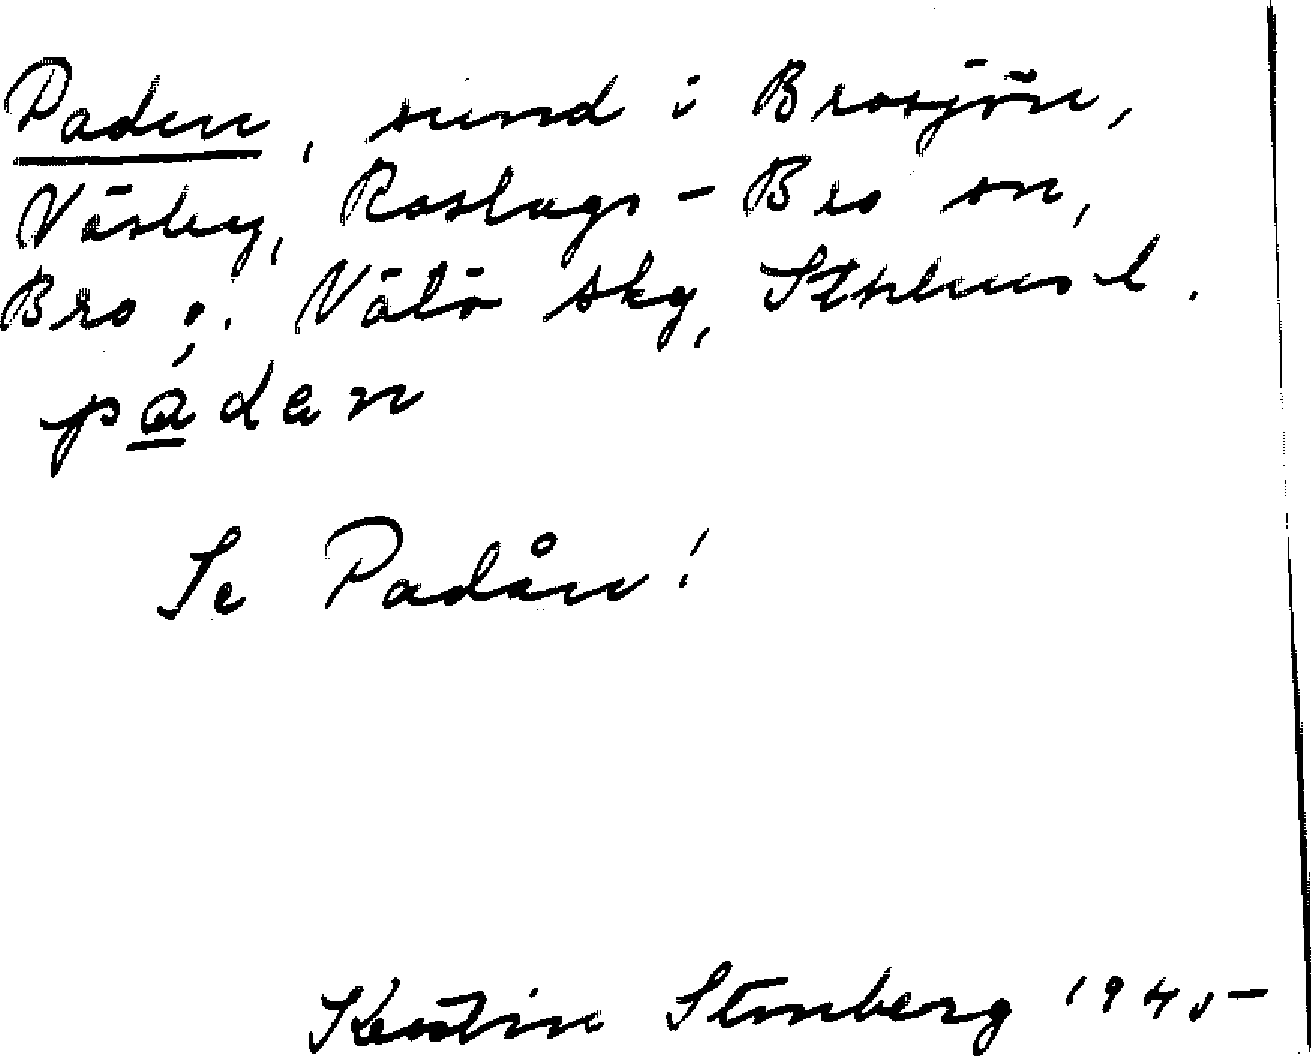 Paden, sund i Brosjön,
Väsby, Roslags-Bro sn,
Bro o. Vätö skg, Sthlms l.
páden
Se Padån!
Kerstin Stenberg 1945